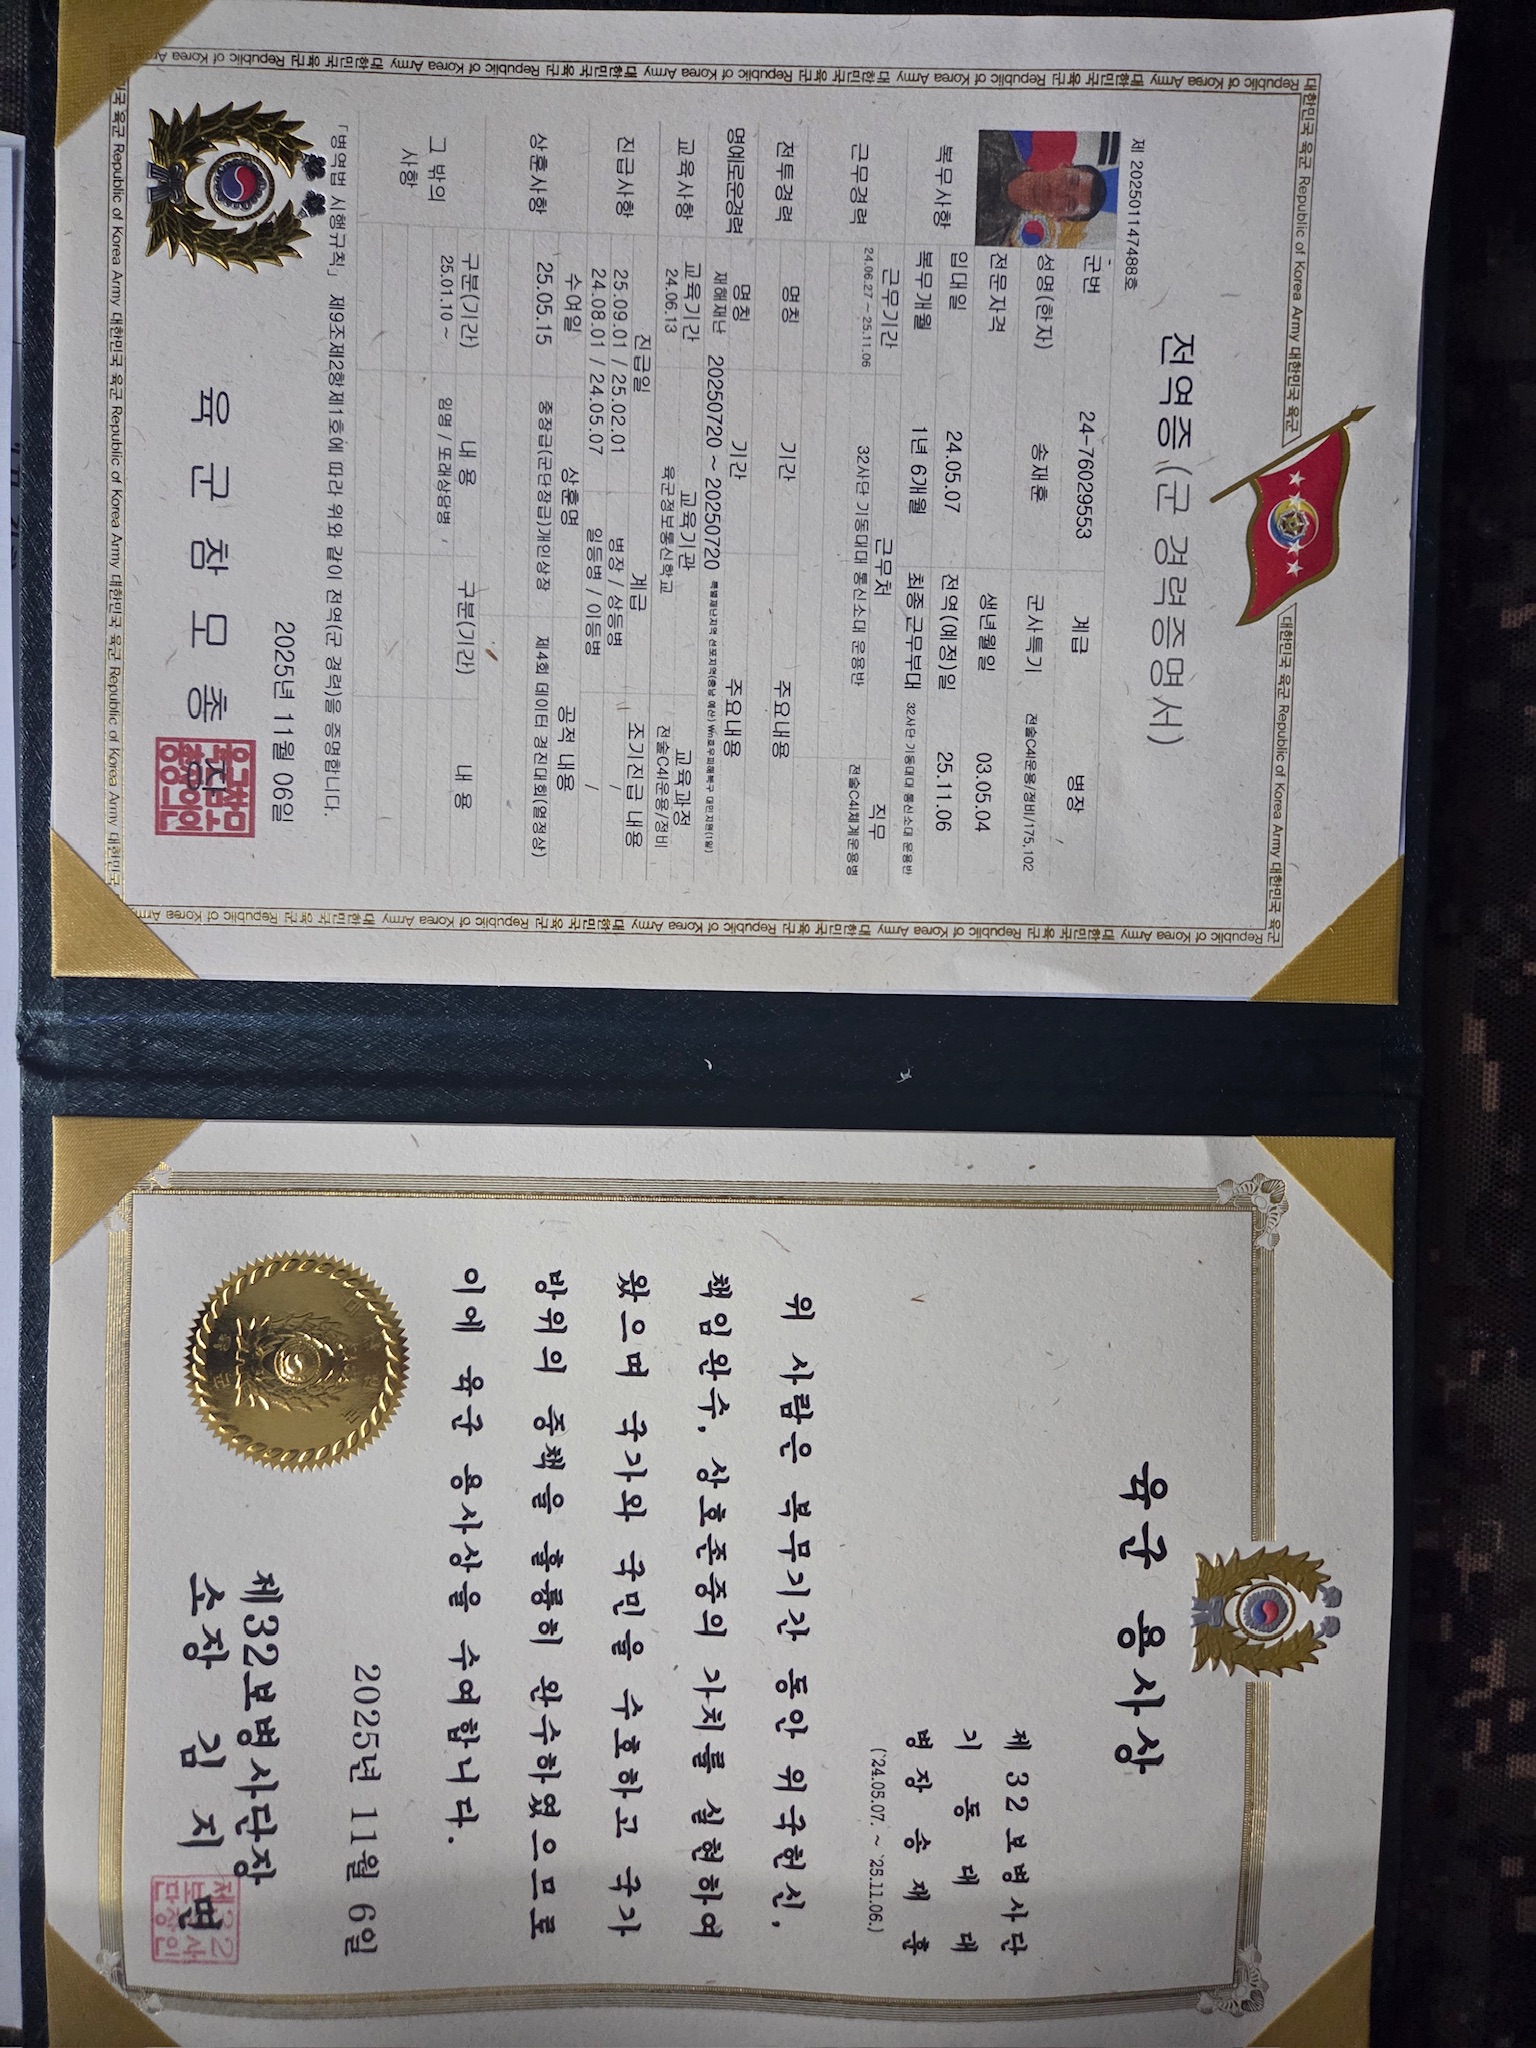 제 2025011474888호
전역증 (군 경력증명서)
군번 24-76029553 계급 병장
성명(한자) 송재훈 군사특기 전술C4I운용/정비/175,102
전문자격 생년월일 03.05.04
복무사항 입대일 24.05.07 전역(예정)일 25.11.06
복무개월 1년 6개월 최종 근무부대 32사단 기동대대 통신소대 운용반
근무경력 근무기간 근무처 직무
24.06.27 ~ 25.11.06 32사단 기동대대 통신소대 운용반 전술C4I체계운용병
전투경력 명칭 기간 주요내용
명예로운경력 명칭 기간 주요내용
재해재난 20250720 ~ 20250720 특별재난지역 선포지역(충남 예산) 호우피해복구 대민지원(1일)
교육사항 교육기간 교육기관 교육과정
24.06.13 육군정보통신학교 전술C4I운용/정비
진급사항 진급일 계급 조기진급 내용
25.09.01 / 25.02.01 병장 / 상등병 /
24.08.01 / 24.05.07 일등병 / 이등병 /
상훈사항 수여일 상훈명 공적 내용
25.05.15 중장급(군단장급)개인상장 제4회 데이터 경진대회(열정상)
그 밖의 사항 구분(기간) 내 용 구분(기간) 내 용
25.01.10 ~ 임명 / 또래상담병
「병역법 시행규칙」 제9조제2항제1호에 따라 위와 같이 전역(군 경력)을 증명합니다.
2025년 11월 06일
육 군 참 모 총 장
육군참모총장의인
대한민국 육군 Republic of Korea Army
육군 용사상
제32보병사단
기동대대
병장 송재훈
('24.05.07. ~ '25.11.06.)
위 사람은 복무기간 동안 위국헌신,
책임완수, 상호존중의 가치를 실현하여
왔으며 국가와 국민을 수호하고 국가
방위의 중책을 훌륭히 완수하였으므로
이에 육군 용사상을 수여합니다.
2025년 11월 6일
제32보병사단장
소장 김 지 면